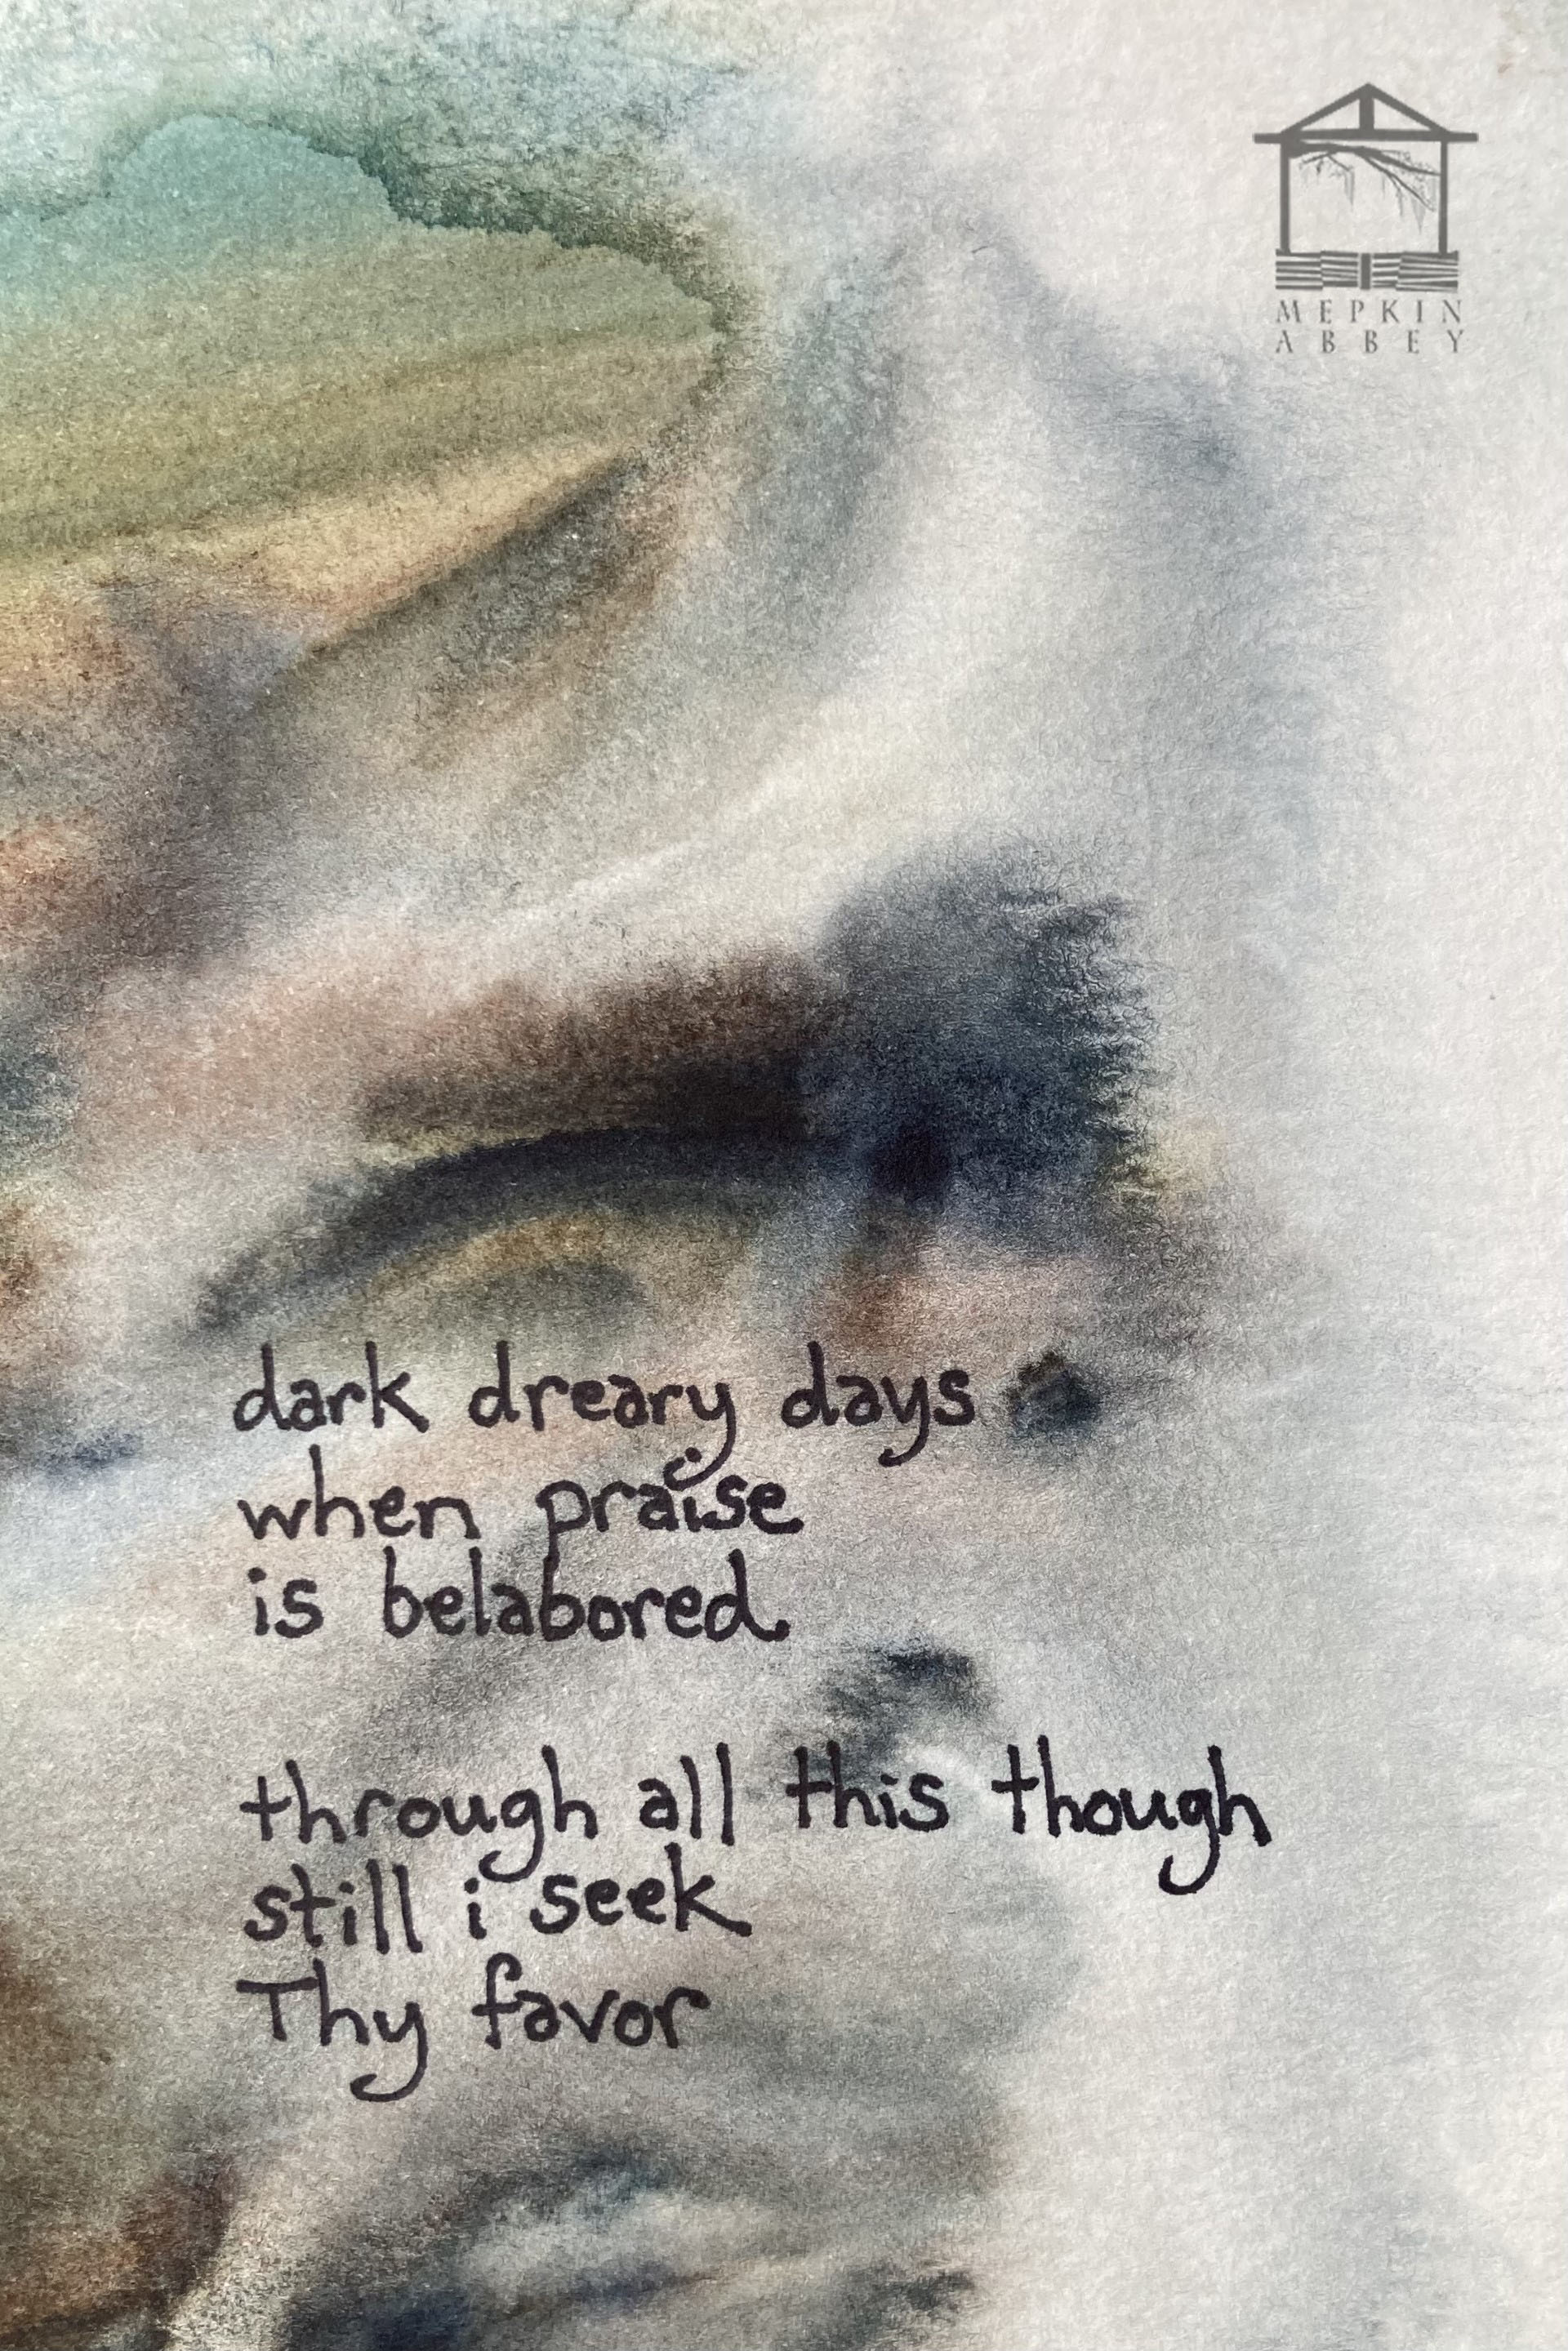 MEPKIN
ABBEY
dark dreary days
when praise
is belabored
through all this though
still i seek
Thy favor